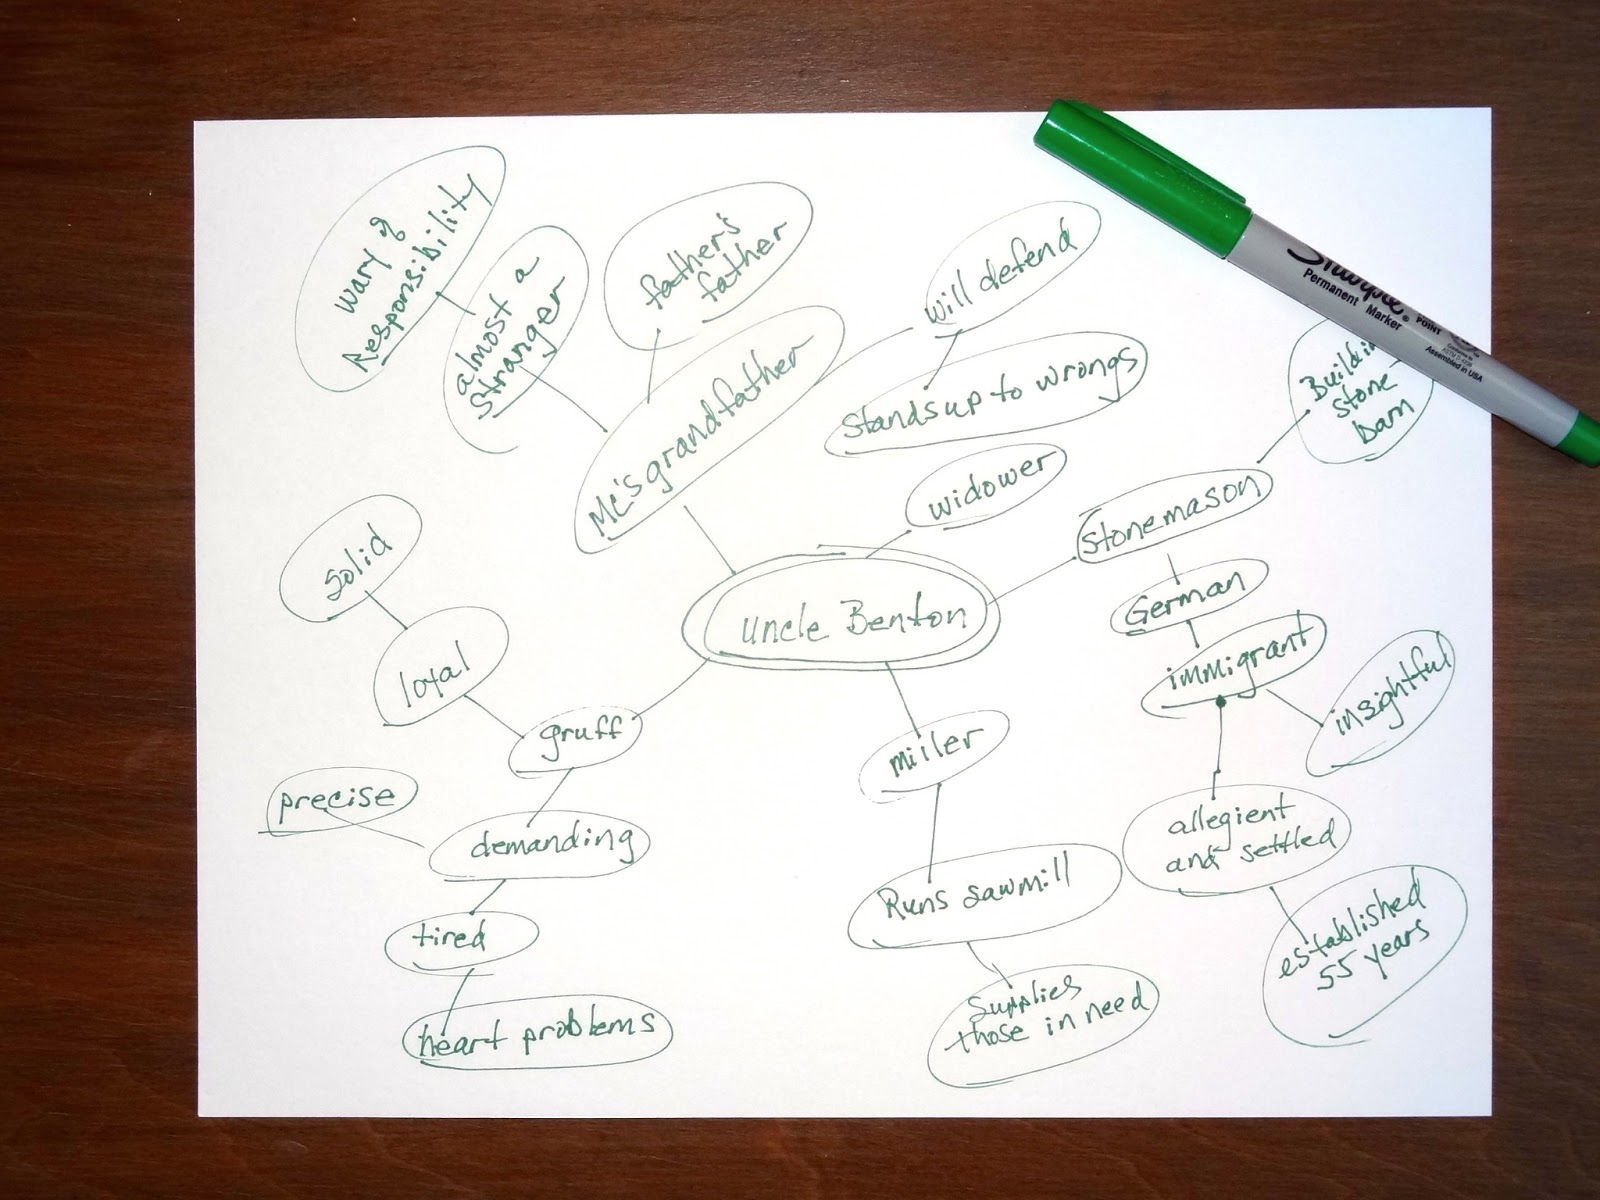 wary of
Responsibility
almost a
Stranger
father's
father
will defend
Stands up to wrongs
MC's grandfather
widower
Stonemason
Stone
barn
Sharpie
Permanent Marker
POINT
Assembled in USA
solid
loyal
gruff
precise
demanding
tired
heart problems
Uncle Benton
miller
Runs sawmill
Supplies
those in need
German
immigrant
insightful
allegient
and settled
established
55 years